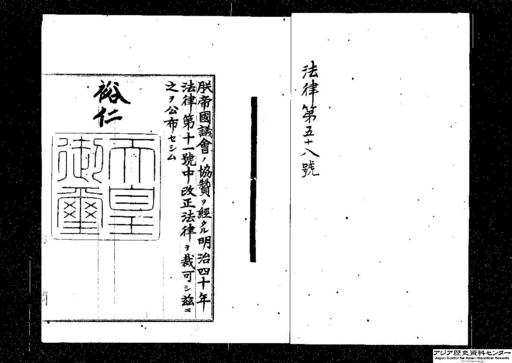 法律第五十八號
朕帝國議會ノ協贊ヲ經タル明治四十年
法律第十一號中改正法律ヲ裁可シ茲ニ
之ヲ公布セシム
裕仁
天皇
御璽
アジア歴史資料センター
Japan Center for Asian Historical Records